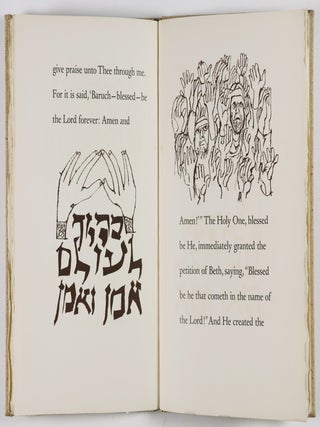 give praise unto Thee through me.
For it is said, 'Baruch—blessed—be
the Lord forever: Amen and
ברוך
לעולם
אמן ואמן
Amen!'" The Holy One, blessed
be He, immediately granted the
petition of Beth, saying, "Blessed
be he that cometh in the name of
the Lord!" And He created the